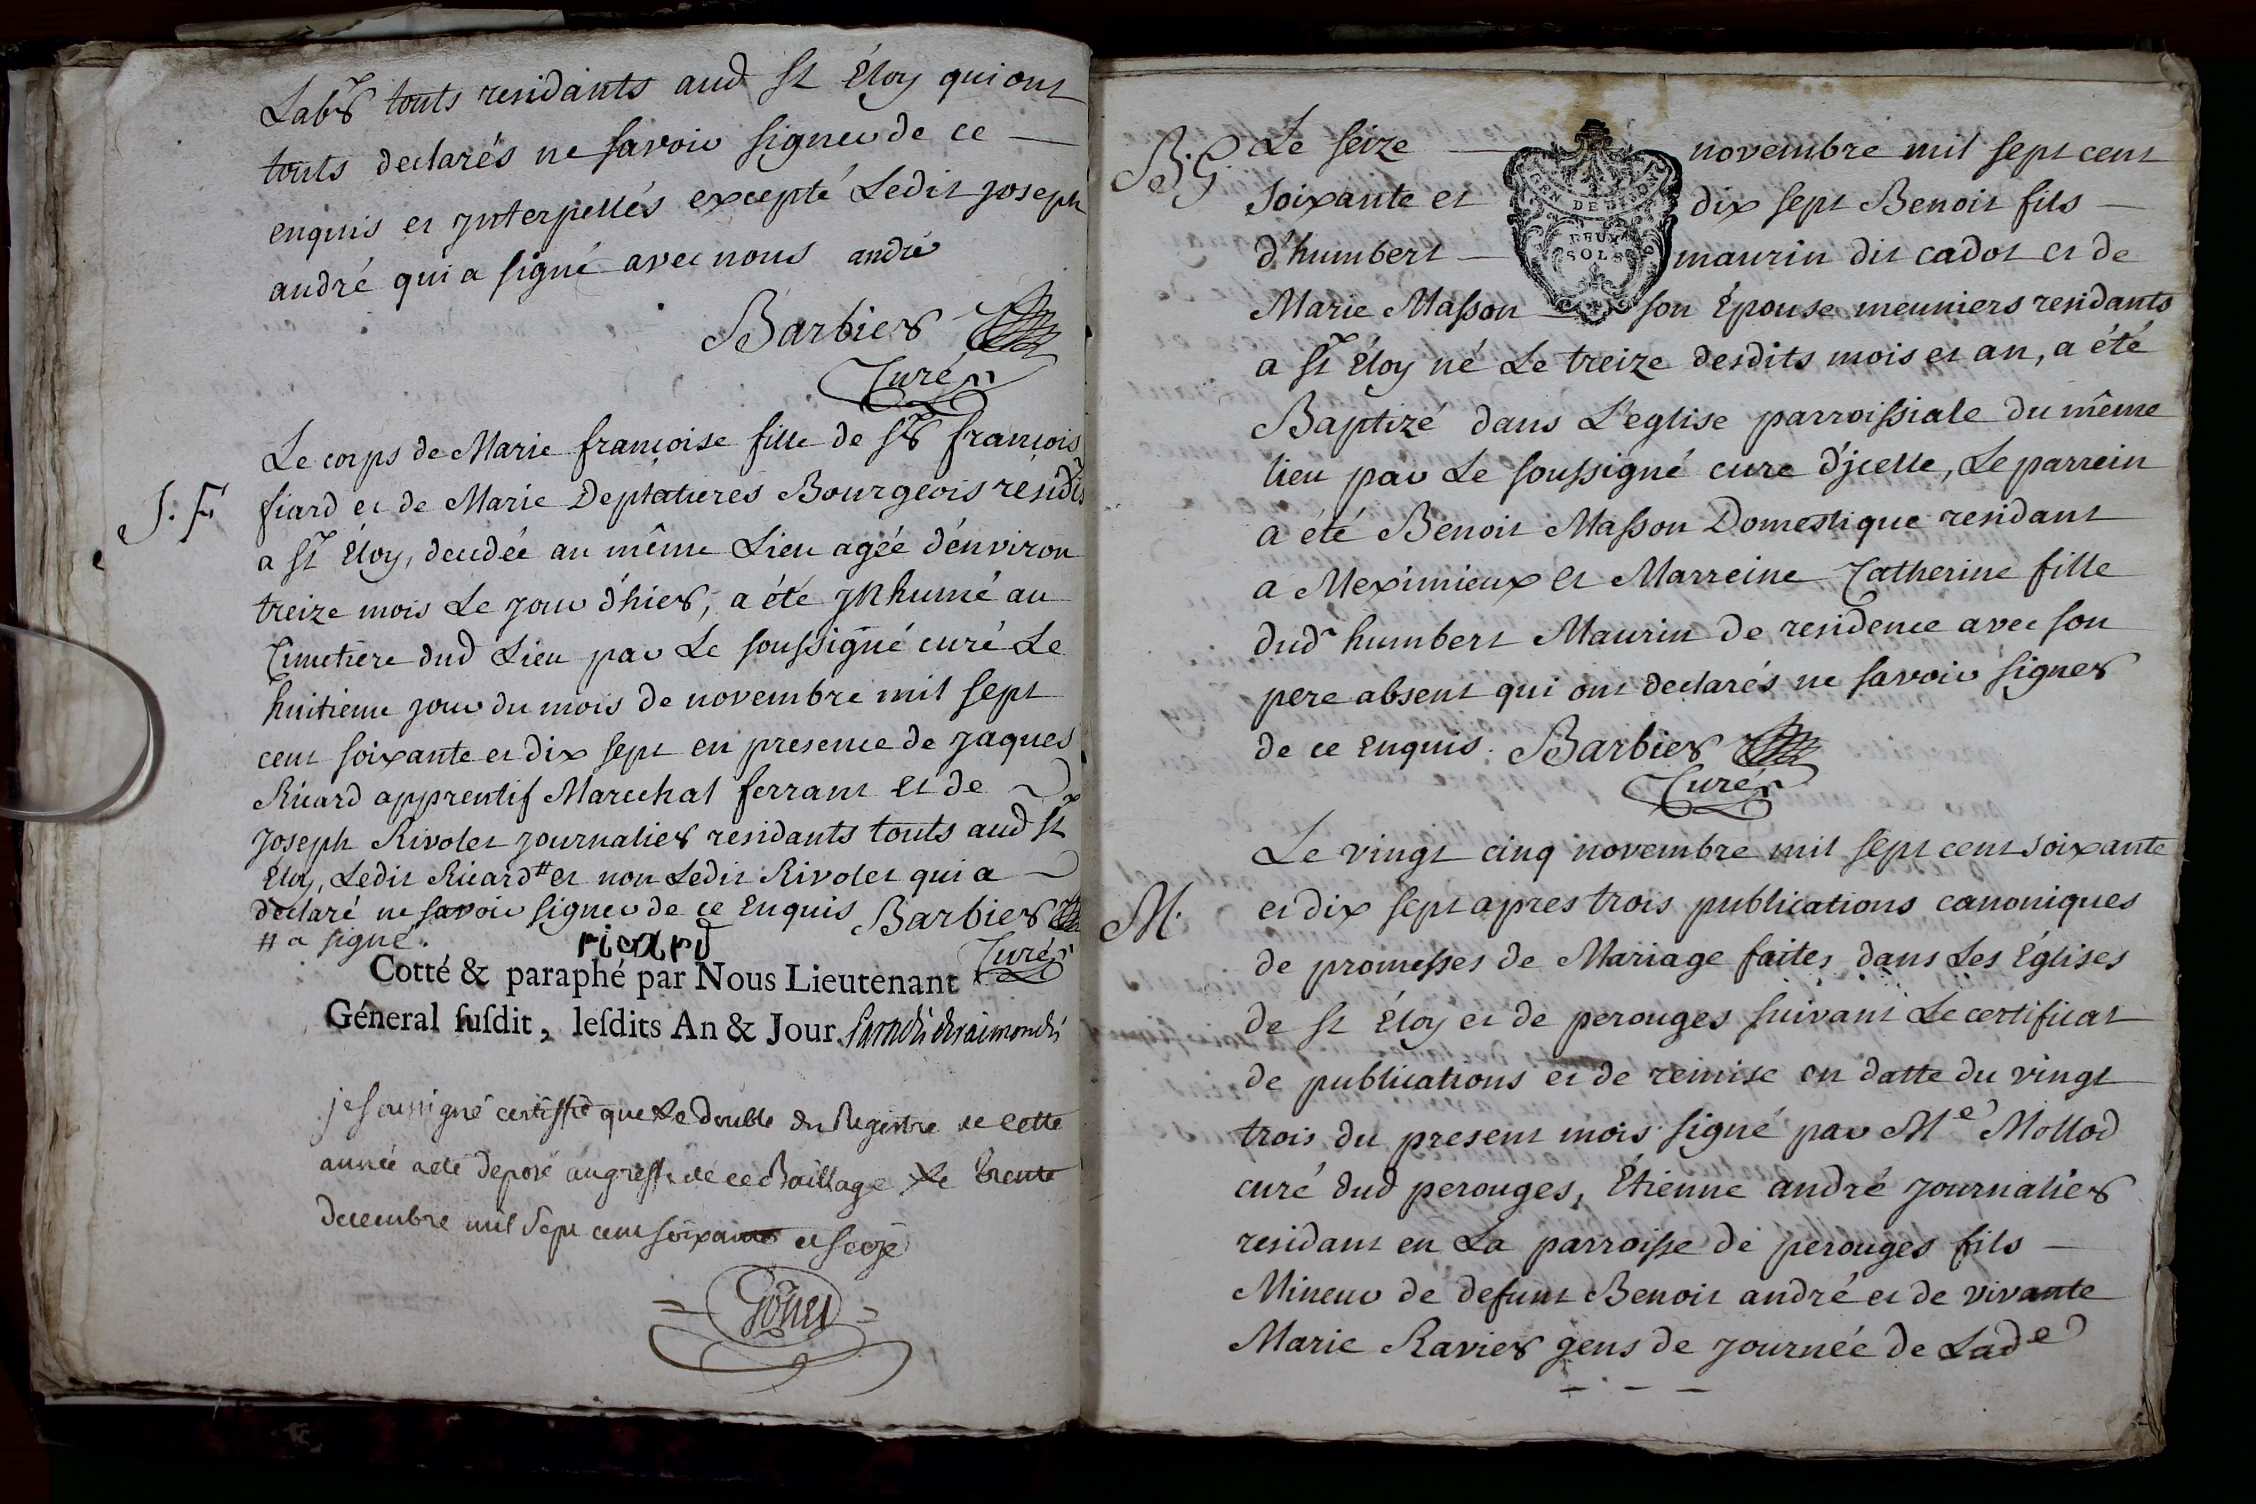 Lab.rs touts residants aud St Éloy qui ont
touts declarés ne savoir signer de ce
enquis et jnterpellés excepté Ledit joseph
andré qui a signé avec nous andré
Barbier
Curé
Le corps de Marie françoise fille de Sr françois
S. F. fiard et de Marie Deplatieres Bourgeois résidts
a St Éloy, decedée au même Lieu agée d'environ
treize mois Le jour d'hier, a été jnhumé au
Cimetiere dud Lieu par Le soussigné curé Le
huitieme jour du mois de novembre mil sept
cent soixante et dix sept en presence de jaques
Ricard apprentif Marechal ferrant et de
joseph Rivolet journalier residants touts aud St
Eloy, Ledit Ricard # et non Ledit Rivolet qui a
declaré ne savoir signer de ce Enquis Barbier
# a signé. ricard Curé
Cotté & paraphé par Nous Lieutenant
Géneral susdit, lesdits An & Jour.
je soussigné certiffie que Le double du Registre de cette
année a été deposé au greffe de ce Baillage Le trente
decembre mil sept cent soixante et seize
B. G. Le seize novembre mil sept cent
soixante et dix sept Benoit fils
d'humbert maurin dit cadot et de
Marie Masson son Épouse meuniers residants
a St Éloy né Le treize desdits mois et an, a été
Baptizé dans L'eglise parroissiale du même
lieu par Le soussigné cure d'jcelle, Le parrein
a été Benoit Masson Domestique residant
a Meximieux et Marreine Catherine fille
dud humbert Maurin de residence avec son
pere absent qui ont declarés ne savoir signer
de ce Enquis. Barbier
Curé
GEN DE DIJON
DEUX
SOLS
Le vingt cinq novembre mil sept cent soixante
M. et dix sept apres trois publications canoniques
de promesses de Mariage faites dans Les Églises
de St Éloy et de perouges suivant Le certificat
de publications et de remise en datte du vingt
trois du present mois signé par Me Mollod
curé dud perouges, Étienne andré journalier
residant en La parroisse de perouges fils
Mineur de defunt Benoit andré et de vivante
Marie Ravier gens de journée de Lade